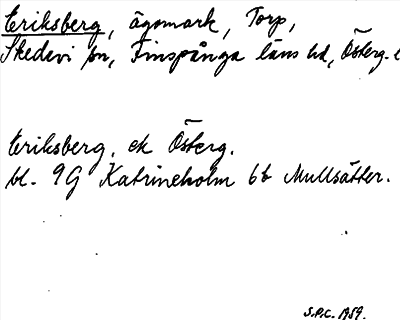 Eriksberg, ägomark, Torp,
Skedevi sn, Finspånga läns hd, Österg. l
Eriksberg. ek Österg.
bl. 9G Katrineholm 6b Mullsätter.
S.P.C. 1959.